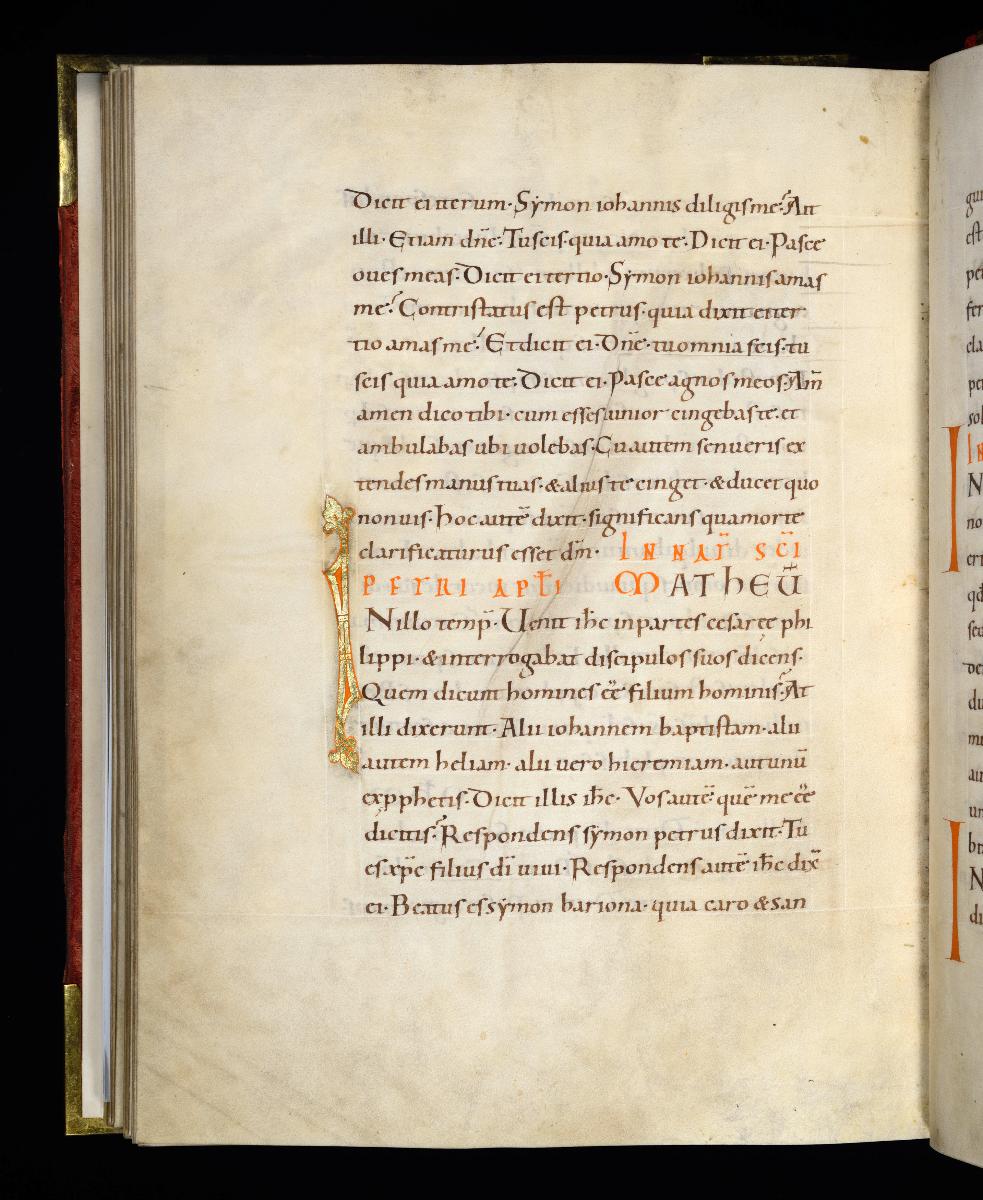 Dicit ei iterum· Symon iohannis diligis me? Ait
illi· Etiam dñe· Tu scis quia amo te· Dicit ei· Pasce
oues meas· Dicit ei tertio· Symon iohannis amas
me? Contristatus est petrus· quia dixit ei ter
tio amas me? Et dicit ei· Dñe· tu omnia scis· tu
scis quia amo te· Dicit ei· Pasce agnos meos· Am̄
amen dico tibi· cum esses iunior cingebas te· et
ambulabas ubi uolebas· Cū autem senueris ex
tendes manus tuas· & alius te cinget· & ducet quo
non uis· Hoc autē dixit· significans qua morte
clarificaturus esset dm̄· IN NAT̄ SC̄I
PETRI APT̄I MATHEŪ
IN illo temp̄· Uenit ihc̄ in partes cesaręe phi
lippi· & interrogabat discipulos suos dicens·
Quem dicunt homines eē filium hominis? At
illi dixerunt· Alii iohannem baptistam· alii
autem heliam· alii uero hieremiam· aut unū
ex pphetis· Dicit illis ihc̄· Vos autē quē me eē
dicitis? Respondens symon petrus dixit· Tu
es xpc̄ filius dī uiui· Respondens autē ihc̄ dix̄
ei· Beatus es symon bariona· quia caro & san